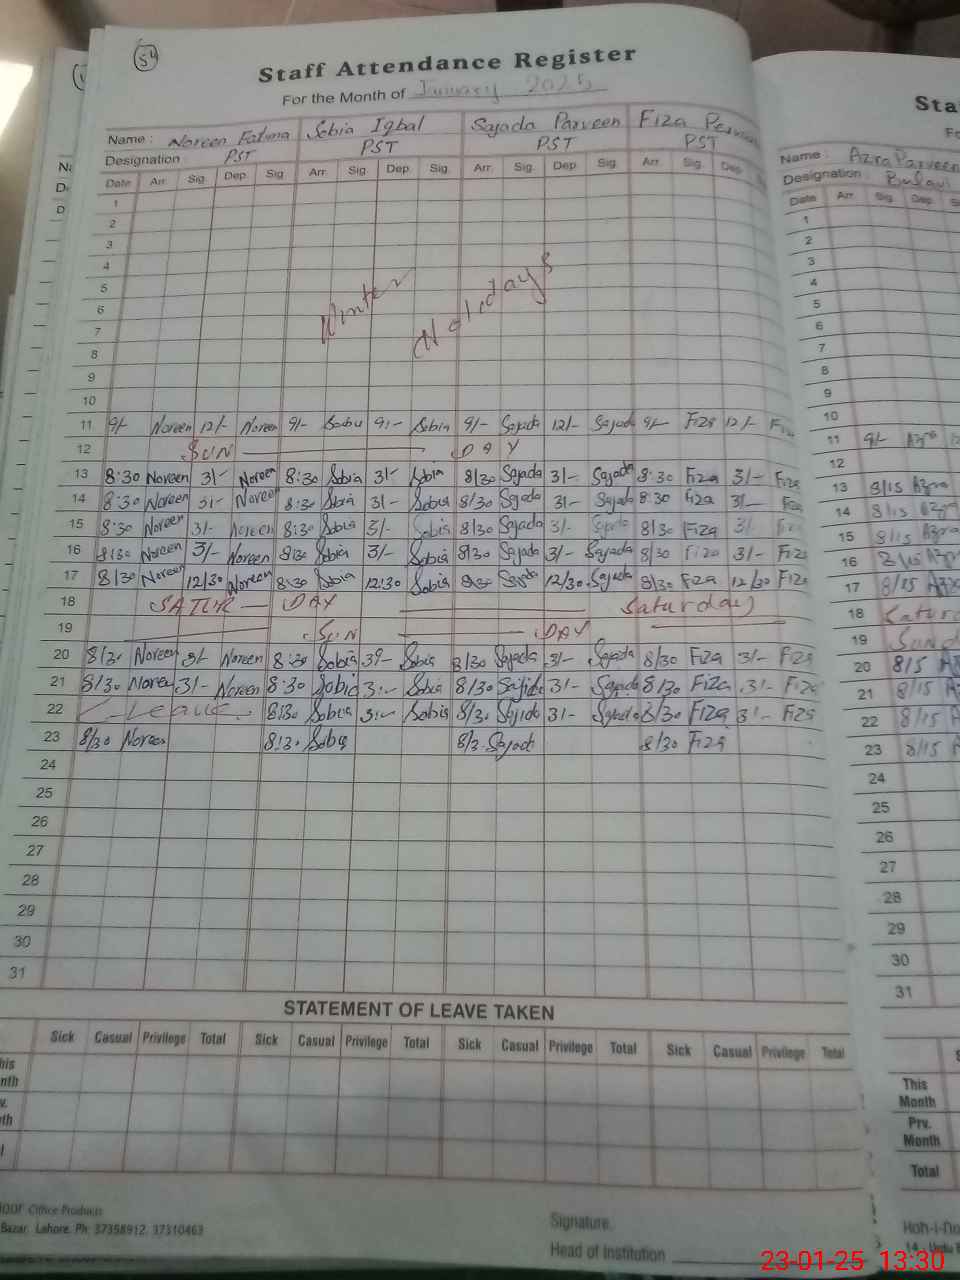 54
Staff Attendance Register
For the Month of January 2025
Name : Noreen Fatima Sobia Iqbal Sajada Parveen Fiza
Designation : PST PST PST PST
Date Arr. Sig. Dep. Sig. Arr. Sig. Dep. Sig. Arr. Sig. Dep. Sig. Arr. Sig. Dep.
1
2
3
4
5
6
7
8
9
10
Winter Holidays
11 9/- Noreen 12/- Noreen 9/- Sobia 9:- Sobia 9/- Sajada 12/- Sajada 9/- Fiza 12/- Fiza
12 SUN DAY
13 8:30 Noreen 3/- Noreen 8:30 Sobia 3/- Sobia 8/30 Sajada 3/- Sajada 8:30 Fiza 3/- Fiza
14 8:30 Noreen 3/- Noreen 8:30 Sobia 3/- Sobia 8/30 Sajada 3/- Sajada 8:30 Fiza 3/- Fiza
15 8/30 Noreen 3/- Noreen 8:30 Sobia 3/- Sobia 8/30 Sajada 3/- Sajada 8/30 Fiza 3/- Fiza
16 8/30 Noreen 3/- Noreen 8:30 Sobia 3/- Sobia 8/30 Sajada 3/- Sajada 8/30 Fiza 3/- Fiza
17 8/30 Noreen 12/30 Noreen 8:30 Sobia 12:30 Sobia 8:30 Sajada 12/30 Sajada 8/30 Fiza 12/30 Fiza
18 SATUR DAY Saturday
19 SUN DAY
20 8/30 Noreen 3/- Noreen 8:30 Sobia 3/- Sobia 8/30 Sajada 3/- Sajada 8/30 Fiza 3/- Fiza
21 8/30 Noreen 3/- Noreen 8:30 Sobia 3:- Sobia 8/30 Sajida 3/- Sajada 8/30 Fiza 3/- Fiza
22 Leave. 8:30 Sobia 3:- Sobia 8/30 Sajida 3/- Sajada 8/30 Fiza 3/- Fiza
23 8/30 Noreen 8:30 Sobia 8/3. Sajada 8/30 Fiza
24
25
26
27
28
29
30
31
STATEMENT OF LEAVE TAKEN
Sick Casual Privilege Total Sick Casual Privilege Total Sick Casual Privilege Total Sick Casual Privilege Total
Office Products
Bazar, Lahore. Ph: 37358912, 37310463
Signature.
Head of Institution
Sta
Name : Azra Parveen
Designation :
Date Arr. Sig. Dep.
1
2
3
4
5
6
7
8
9
10
11 9/- Azra 12
12
13 8/15 Azra
14 8/15 Azra
15 8/15 Azra
16 8/15 Azra
17 8/15 Azra
18 Satur
19 SUND
20 8/15
21 8/15
22 8/15
23 8/15
24
25
26
27
28
29
30
31
This Month
Prv. Month
Total
23-01-25 13:30